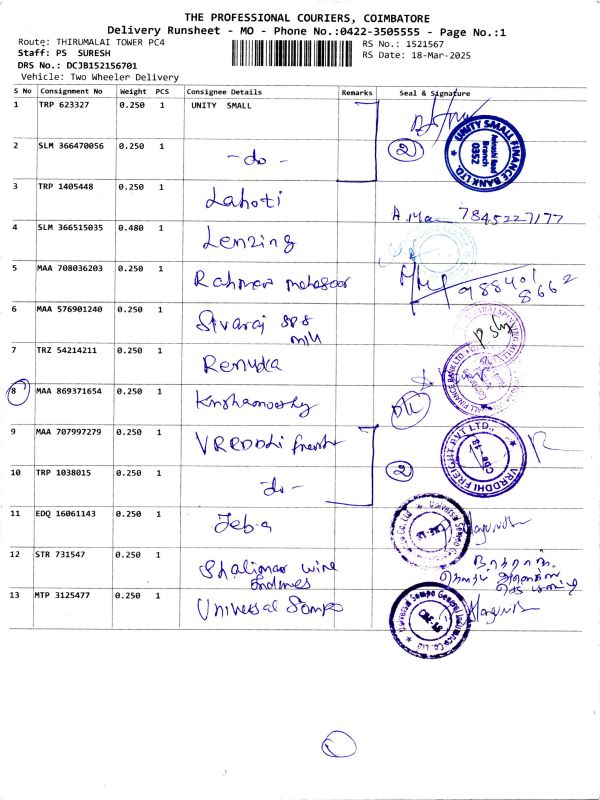 THE PROFESSIONAL COURIERS, COIMBATORE
Delivery Runsheet - MO - Phone No.:0422-3505555 - Page No.:1
Route: THIRUMALAI TOWER PC4
RS No.: 1521567
Staff: PS SURESH
RS Date: 18-Mar-2025
DRS No.: DCJB152156701
Vehicle: Two Wheeler Delivery
S No Consignment No Weight PCS Consignee Details Remarks Seal & Signature
1 TRP 623327 0.250 1 UNITY SMALL
UNITY SMALL FINANCE BANK LTD.
Avinashi Road
Branch
0352
2 SLM 366470056 0.250 1 -do- 2
3 TRP 1405448 0.250 1 Lahoti 7845227177
4 SLM 366515035 0.480 1 Lenzing
5 MAA 708036203 0.250 1 Rahman 9884018662
6 MAA 576901240 0.250 1 Sivaraj SPG
Mill
7 TRZ 54214211 0.250 1 Renuka
8 MAA 869371654 0.250 1 Krishamoorthy DL
9 MAA 707997279 0.250 1 VRRDDhi Freight
VRRDDHI FREIGHT PVT LTD.,
CBE-18
10 TRP 1038015 0.250 1 -do- 2
11 EDQ 16061143 0.250 1 Jeba
CBE-18
12 STR 731547 0.250 1 Shalimar wire
Indusries
13 MTP 3125477 0.250 1 Universal Sompo
Universal Sompo General Insurance Co. Ltd
CBE-18